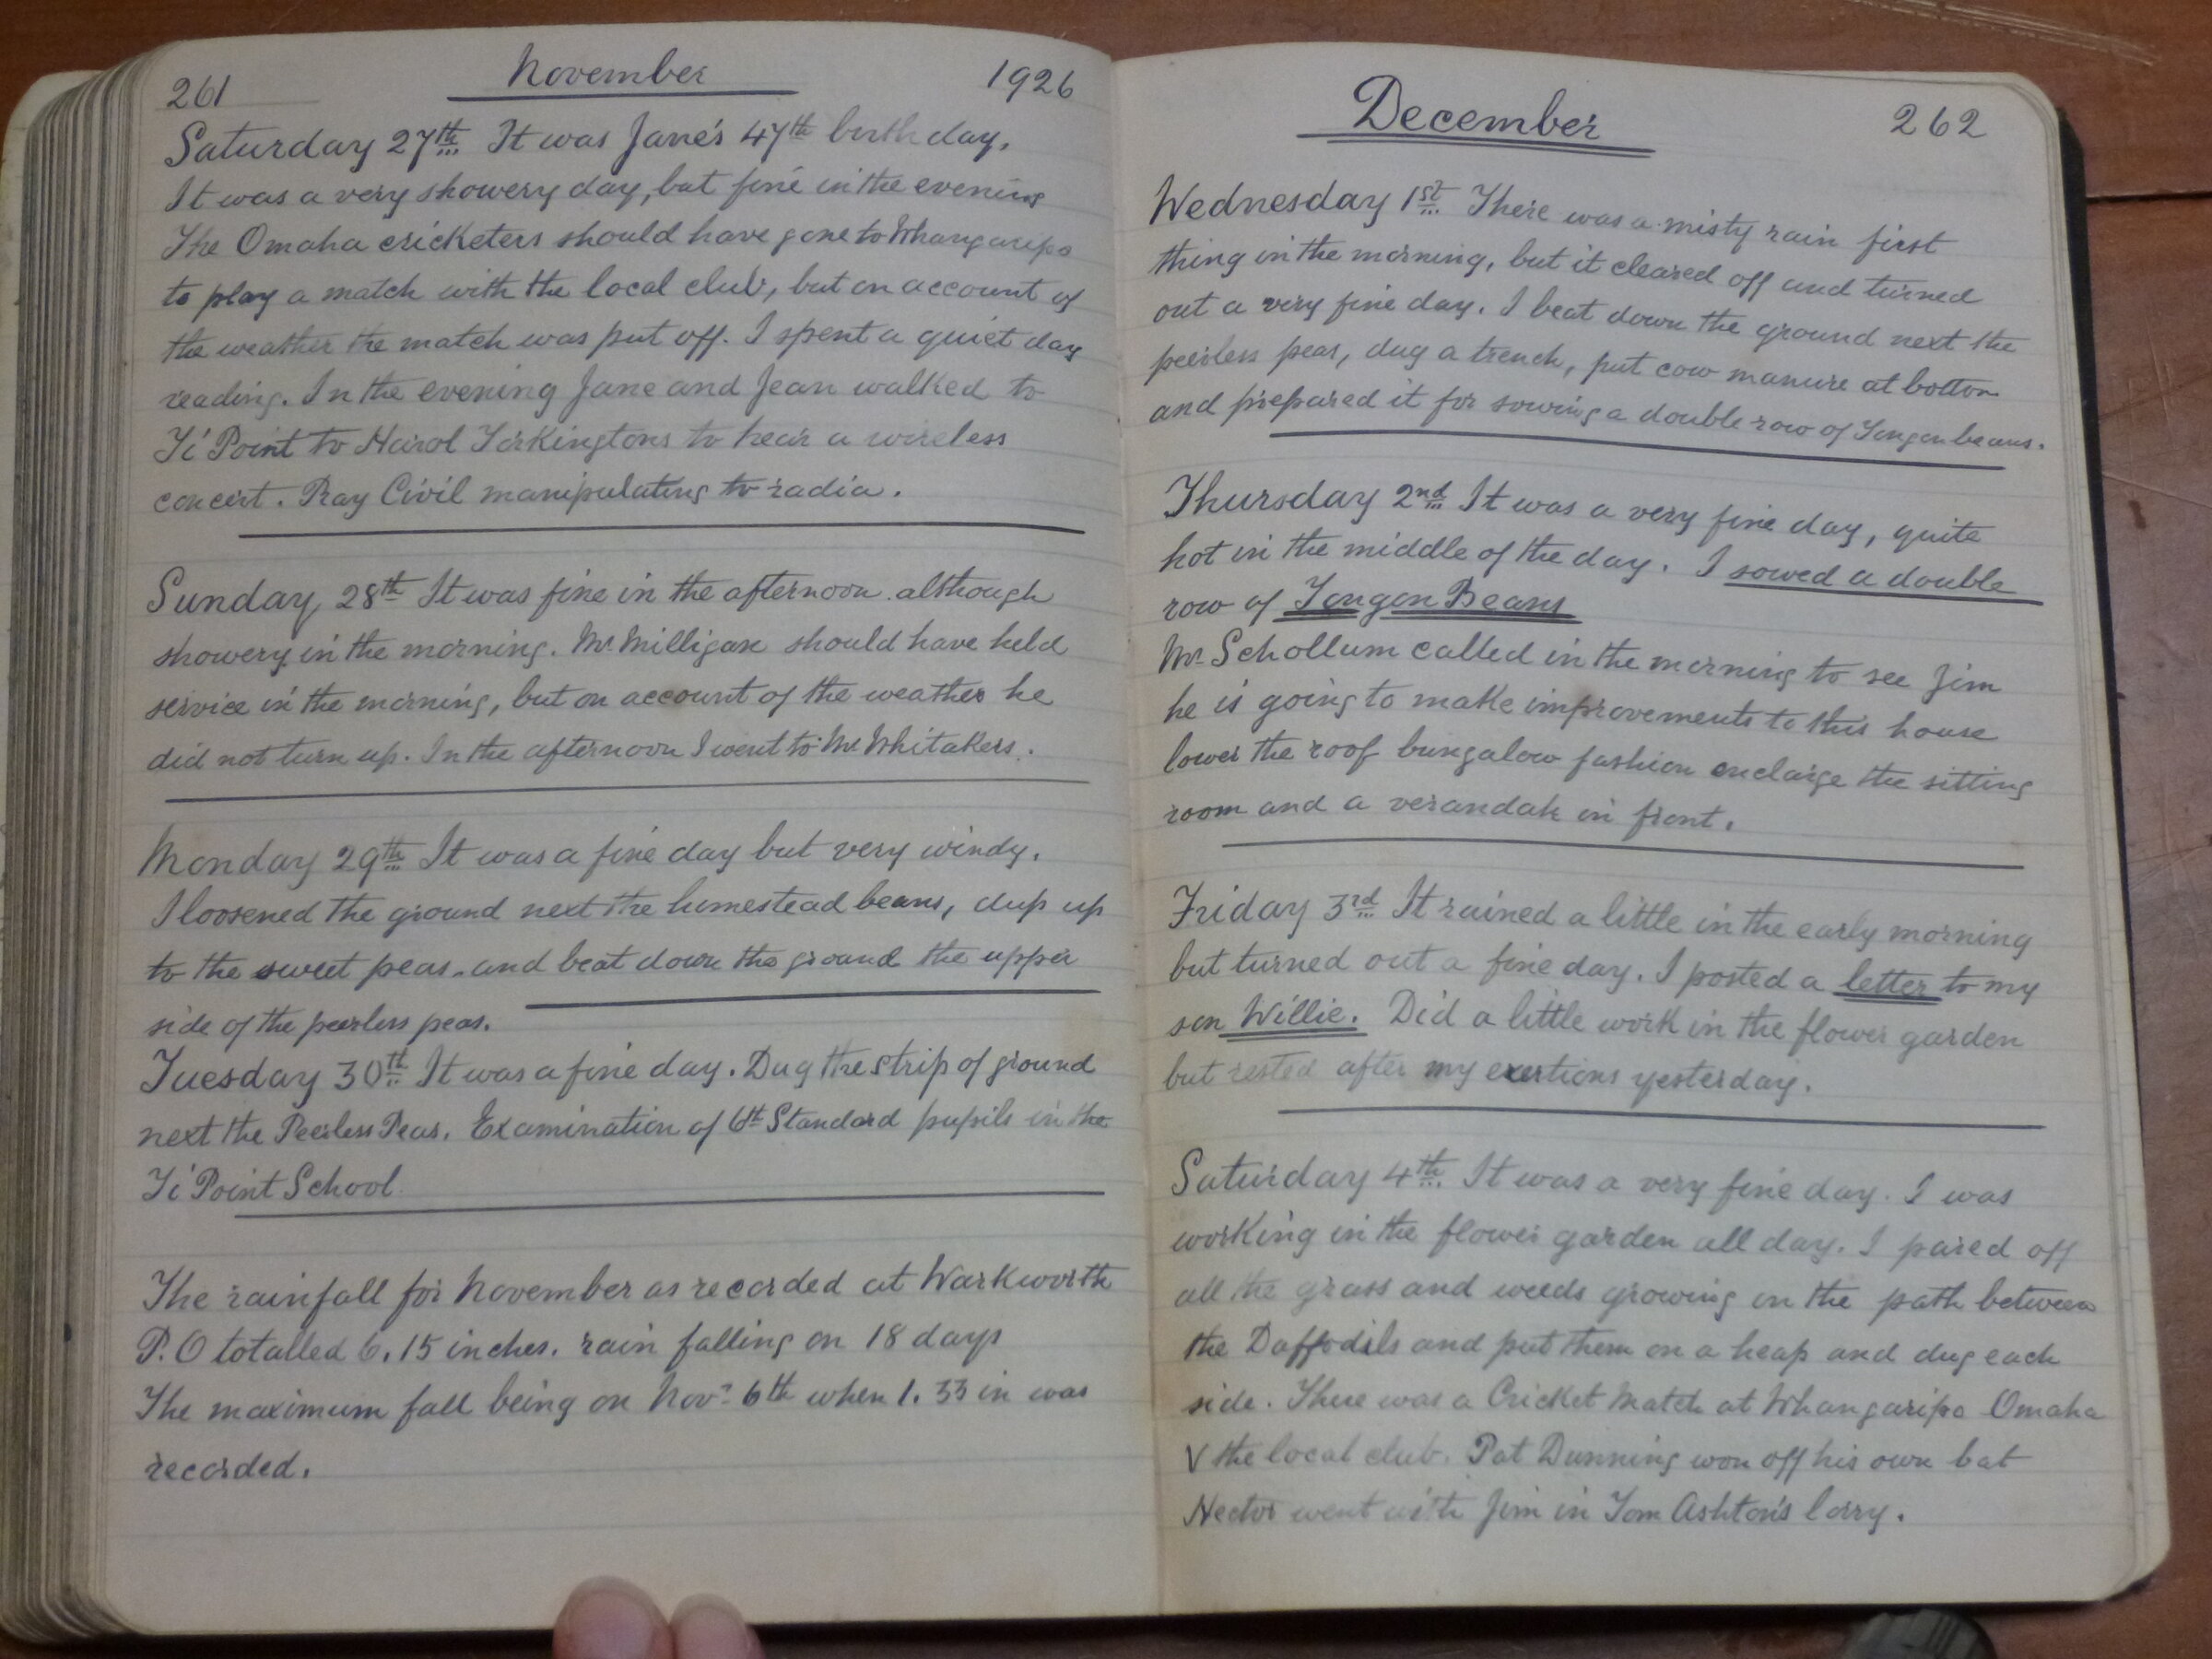 261 November 1926
Saturday 27th It was Jane's 47th birthday.
It was a very showery day, but fine in the evening
The Omaha cricketers should have gone to Whangaripo
to play a match with the local club, but on account of
the weather the match was put off. I spent a quiet day
reading. In the evening Jane and Jean walked to
Ti Point to Harol Torkingtons to hear a wireless
concert. Ray Civil manipulating to radia.
Sunday 28th It was fine in the afternoon although
showery in the morning. Mr Milligan should have held
service in the morning, but on account of the weather he
did not turn up. In the afternoon I went to Mr Whitakers.
Monday 29th It was a fine day but very windy.
I loosened the ground next the homestead beans, dup up
to the sweet peas. and beat down the ground the upper
side of the peerless peas.
Tuesday 30th It was a fine day. Dug the strip of ground
next the Peerless Peas. Examination of 6th Standard pupils in the
Ti Point School
The rainfall for November as recorded at Warkworth
P.O totalled 6.15 inches. rain falling on 18 days
The maximum fall being on Novr 6th when 1.33 in was
recorded.
December 262
Wednesday 1st There was a misty rain first
thing in the morning, but it cleared off and turned
out a very fine day. I beat down the ground next the
peerless peas, dug a trench, put cow manure at bottom
and prepared it for sowing a double row of Tongon beans.
Thursday 2nd It was a very fine day, quite
hot in the middle of the day. I sowed a double
row of Tongon Beans
Mr Schollum called in the morning to see Jim
he is going to make improvements to this house
lower the roof bungalow fashion enclarge the sitting
room and a verandah in front.
Friday 3rd It rained a little in the early morning
but turned out a fine day. I posted a letter to my
son Willie. Did a little work in the flower garden
but rested after my exertions yesterday.
Saturday 4th It was a very fine day. I was
working in the flower garden all day. I pared off
all the grass and weeds growing on the path between
the Daffodils and put them on a heap and dug each
side. There was a Cricket Match at Whangaripo Omaha
V the local club. Pat Dunning won off his own bat
Hector went with Jim in Tom Ashton's lorry.